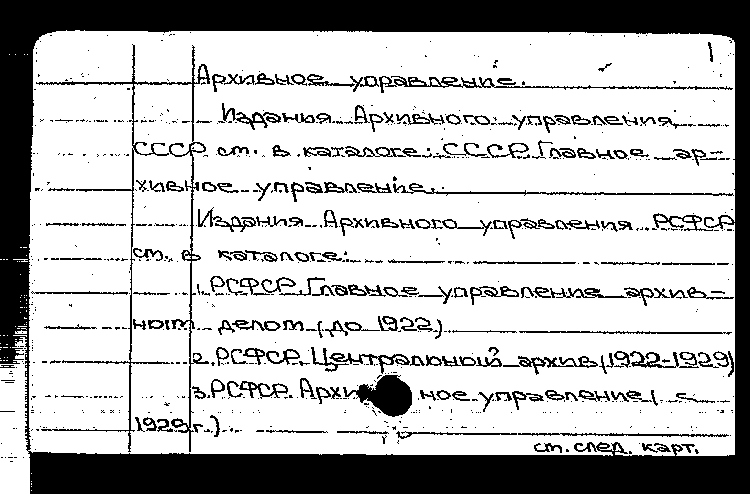 1
Архивное управление.
Издания Архивного управления
СССР см. в каталоге: СССР. Главное ар-
хивное управление.
Издания Архивного управления РСФСР
см. в каталоге:
1. РСФСР. Главное управление архив-
ным делом (до 1922)
2. РСФСР. Центральный архив (1922-1929)
3. РСФСР. Архивное управление ( с
1929 г.)
см. след. карт.